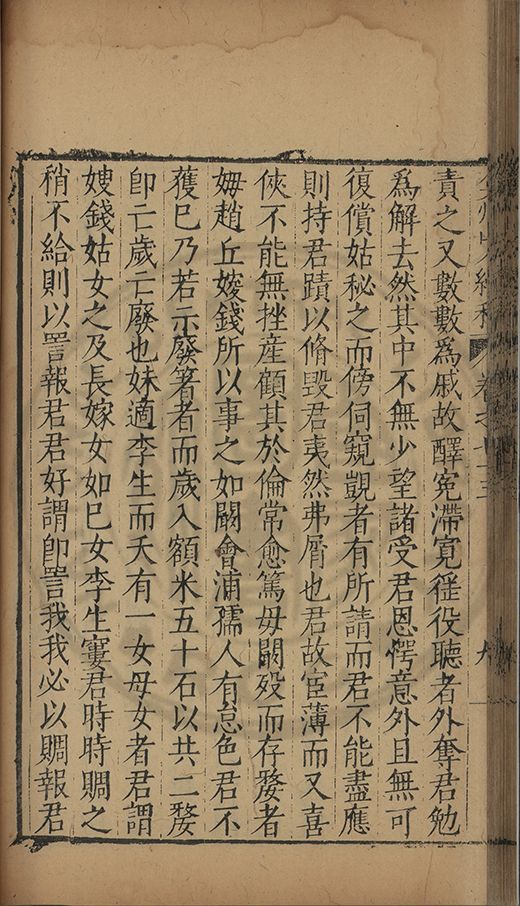 弇州史料
卷之十三
九
責之又數數爲戚故釋冤滯寬徭役聽者外奪君勉
爲解去然其中不無少望諸受君恩愕意外且無可
復償姑秘之而傍伺窺覬者有所請而君不能盡應
則持君蹟以脩毀君夷然弗屑也君故宦薄而又喜
俠不能無挫産顧其於倫常愈篤毋闕歿而存嫠者
姆趙丘嫂錢所以事之如闕會浦孺人有怠色君不
獲已乃若示廢箸者而歲入額米五十石以共二嫠
卽亡歲亡廢也妹適李生而夭有一女母女者君謂
嫂錢姑女之及長嫁女如巳女李生窶君時時賙之
稍不給則以詈報君君好謂卽詈我我必以賙報君